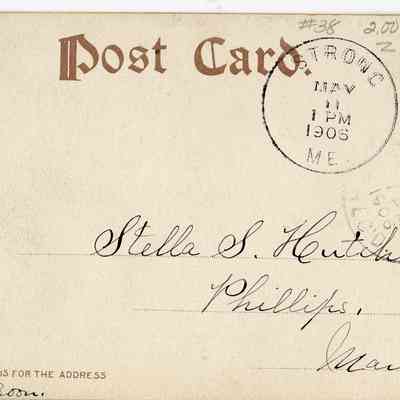 #38 2.00
Z
Post Card.
STRONG
MAY
11
1 PM
1906
ME.
Stella S. Hutch
Phillips,
Mai
IS FOR THE ADDRESS
oon.